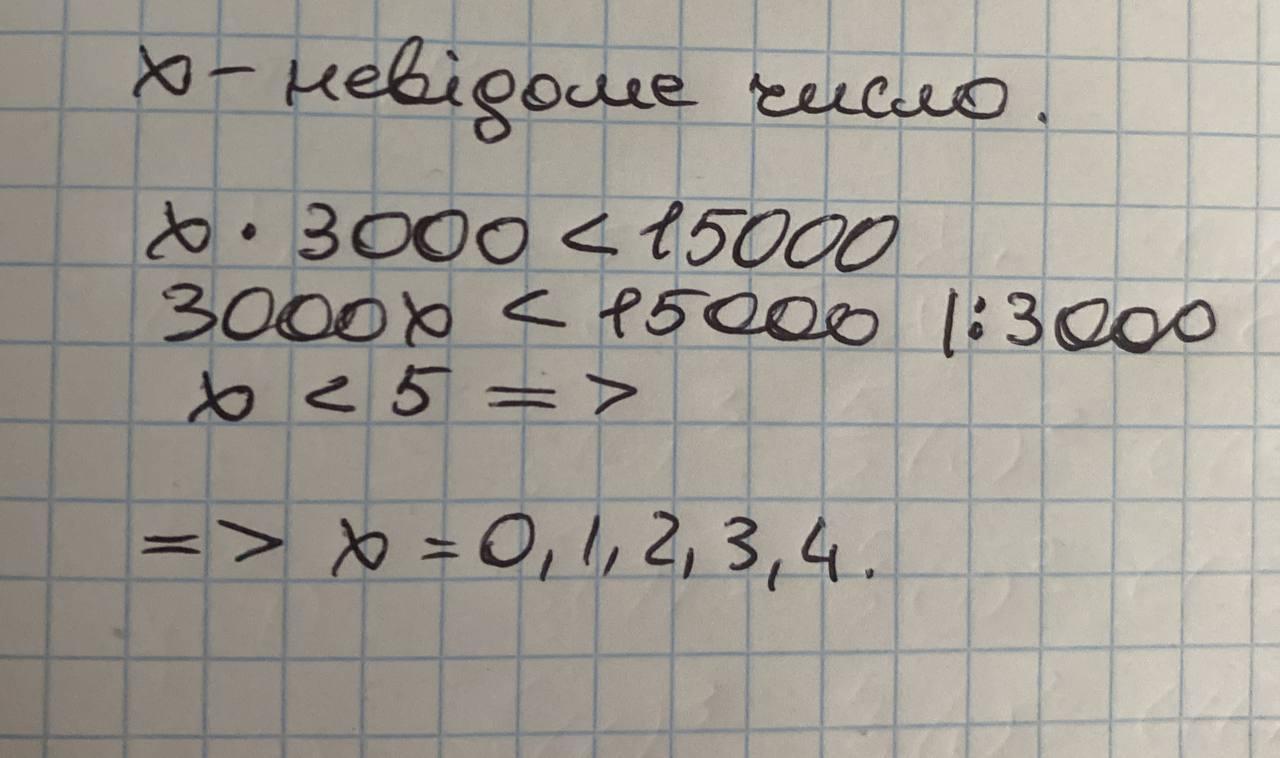 x - невідоме число.
x · 3000 < 15000
3000x < 15000 |:3000
x < 5 =>
=> x = 0, 1, 2, 3, 4.